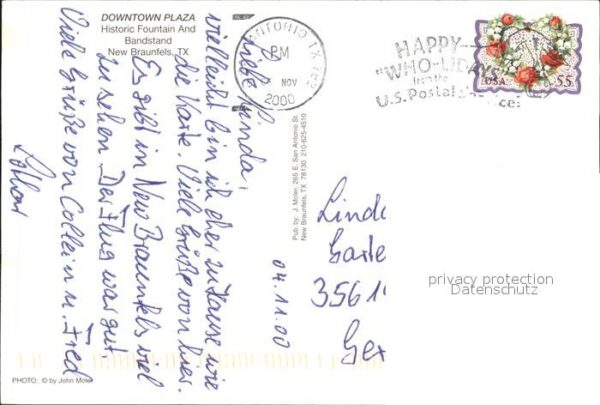 DOWNTOWN PLAZA
Historic Fountain And
Bandstand
New Braunfels, TX
Liebe Linda,
vielleicht bin ich eher zuhause wie
die Karte. Viele Grüße von hier.
Es gibt in New Braunfels viel
zu sehen. Der Flug war gut.
Viele Grüße von Collein u. Fred
PHOTO: © by John Moler
Pub. by J. Moler, 265 E. San Antonio St.
New Braunfels, TX 78130 210-625-4510
04.11.00
ANTONIO TX
PM
NOV
2000
HAPPY
"WHO-LIDA
from the
U.S. Postal
USA
55
Linda
Garte
3561
Ger
privacy protection
Datenschutz